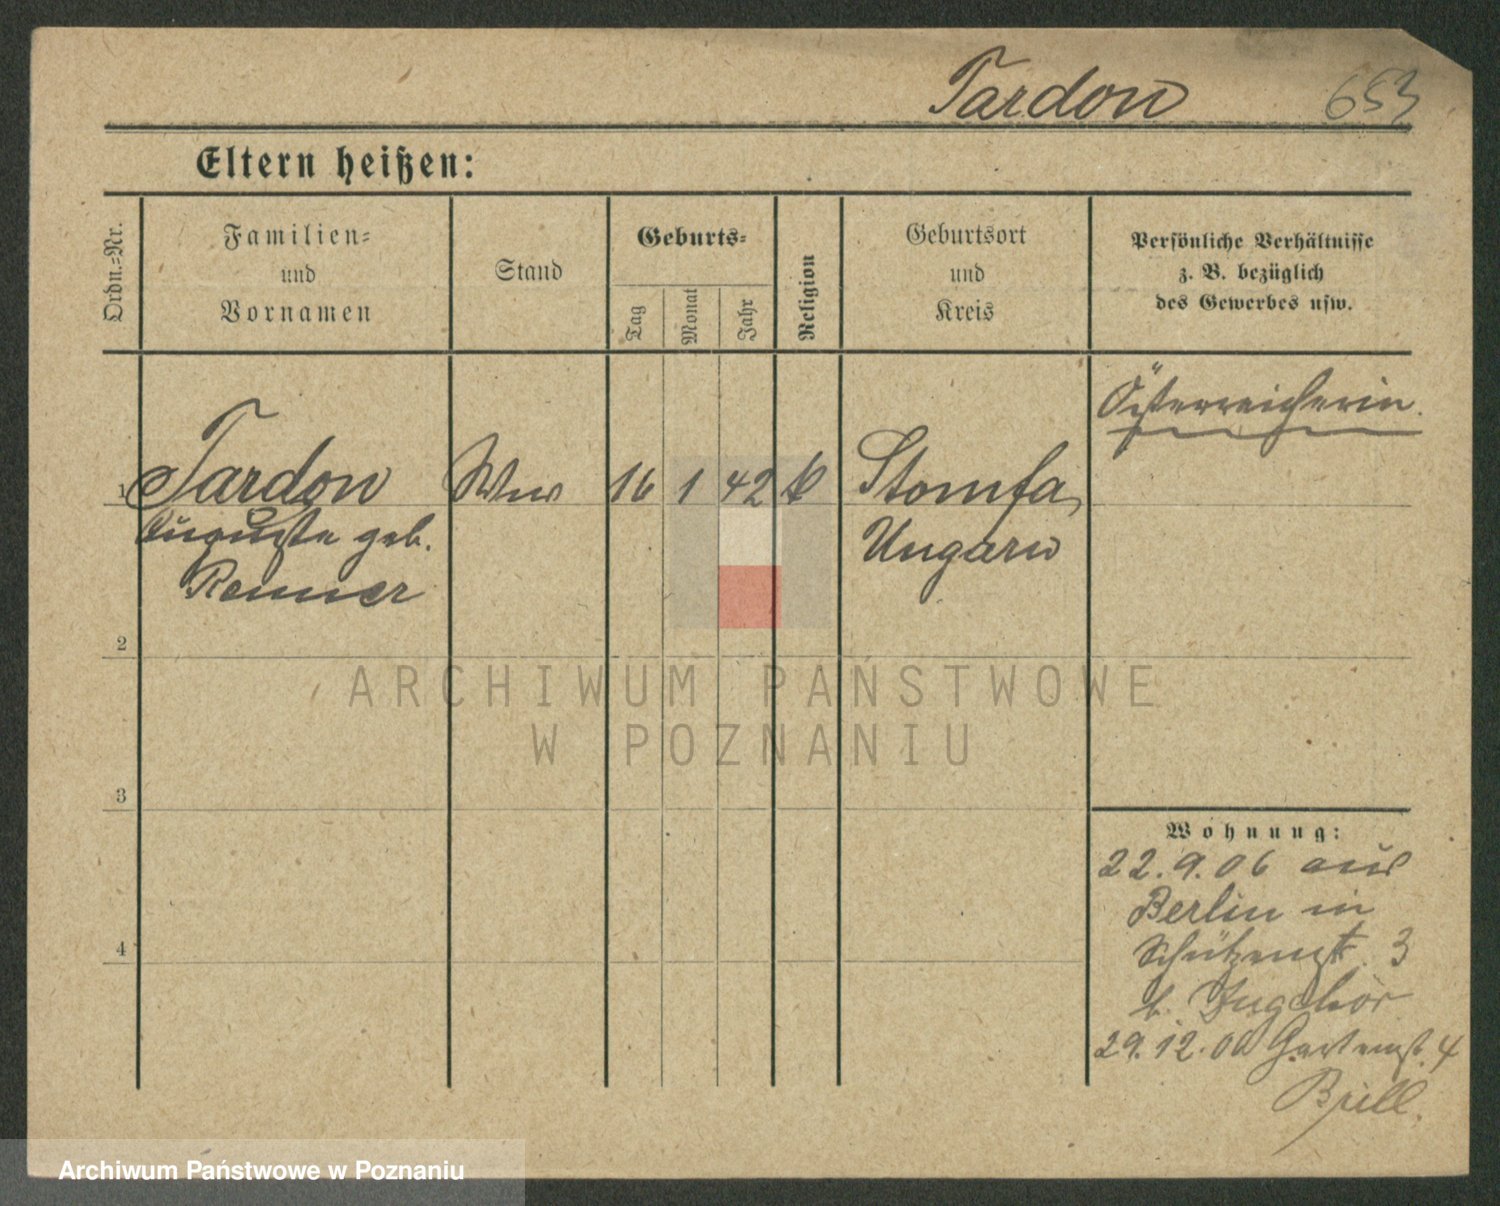 Tardow 653
Eltern heißen:
Ordn.-Nr.
Familien-
und
Vornamen
Stand
Geburts-
Tag
Monat
Jahr
Religion
Geburtsort
und
Kreis
Persönliche Verhältnisse
z. B. bezüglich
des Gewerbes usw.
Österreicherin.
1 Tardow Wwe 16 1 42 k Stomfa,
Auguste geb. Ungarn
Renner
2
ARCHIWUM PAŃSTWOWE
W POZNANIU
3
Wohnung:
22.9.06 aus
Berlin in
4 Schützenst. 3
b.
29.12.06 Gartenst. 4
Brill.
Archiwum Państwowe w Poznaniu